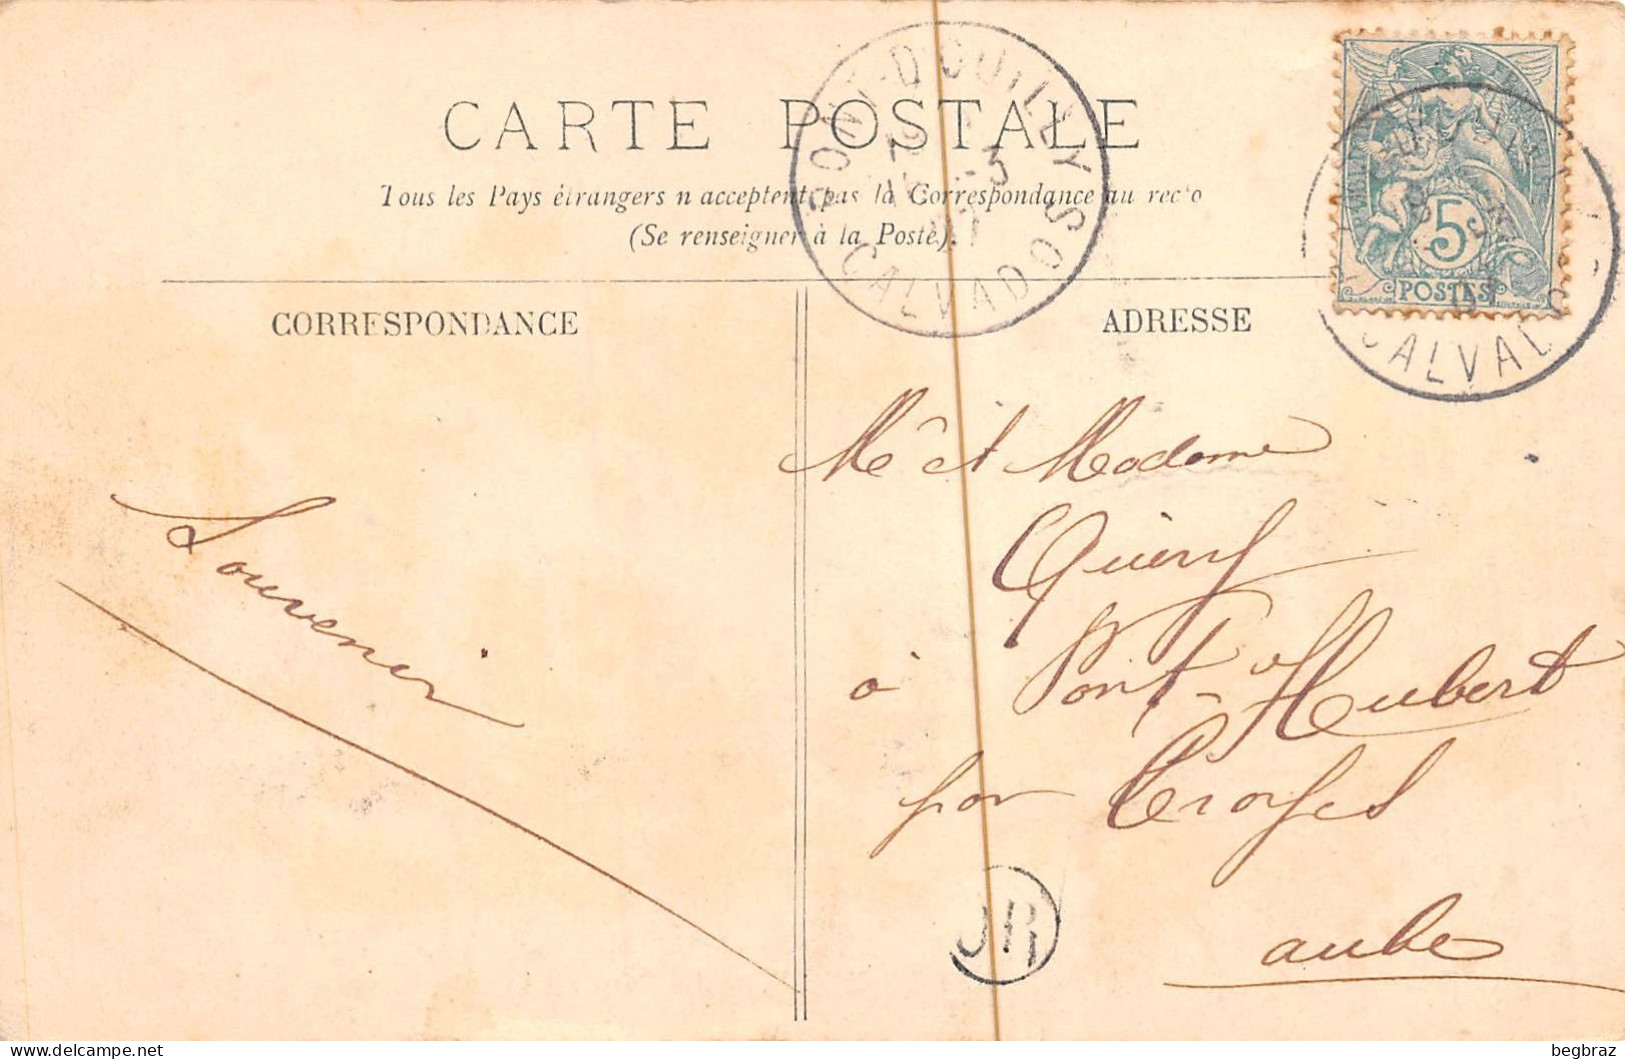 CARTE POSTALE
Tous les Pays étrangers n'acceptent pas la Correspondance au recto
(Se renseigner à la Poste).
CORRESPONDANCE
ADRESSE
PONT-D'OUILLY
12 -3
07
CALVADOS
5
POSTES
CALVADOS
Souvenir
Mr et Madame
à Pont-Hubert
par Troyes
aube
JR
begbraz